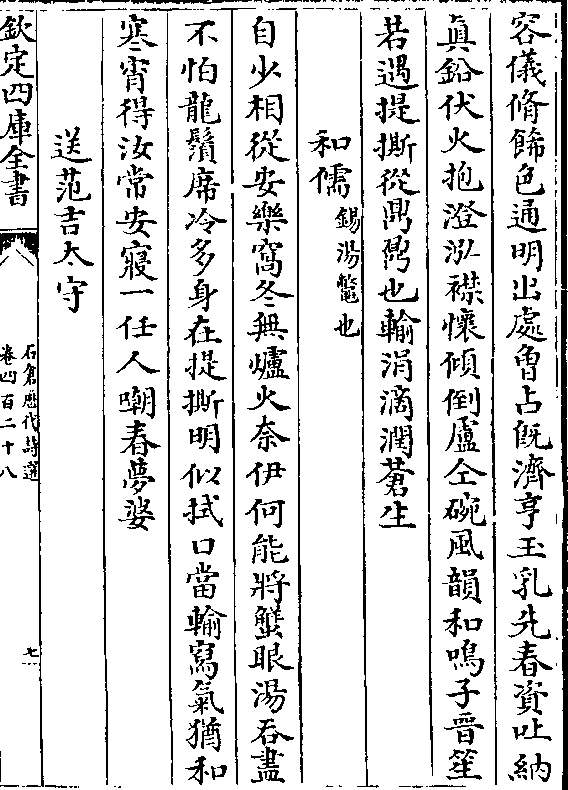 容儀脩飾色通明出處曾占旣濟亨玉乳先春資吐納
眞鉛伏火抱澄泓襟懷傾倒盧仝碗風韻和鳴子晉笙
若遇提撕從鼎鼐也輸涓滴潤蒼生
和儒錫湯鼈也
自少相從安樂窩冬無爐火奈伊何能將蟹眼湯吞盡
不怕龍鬚席冷多身在提撕明似拭口當輸寫氣猶和
寒宵得汝常安寢一任人嘲春夢婆
送范吉太守
欽定四庫全書
石倉歷代詩選
卷四百二十八
七